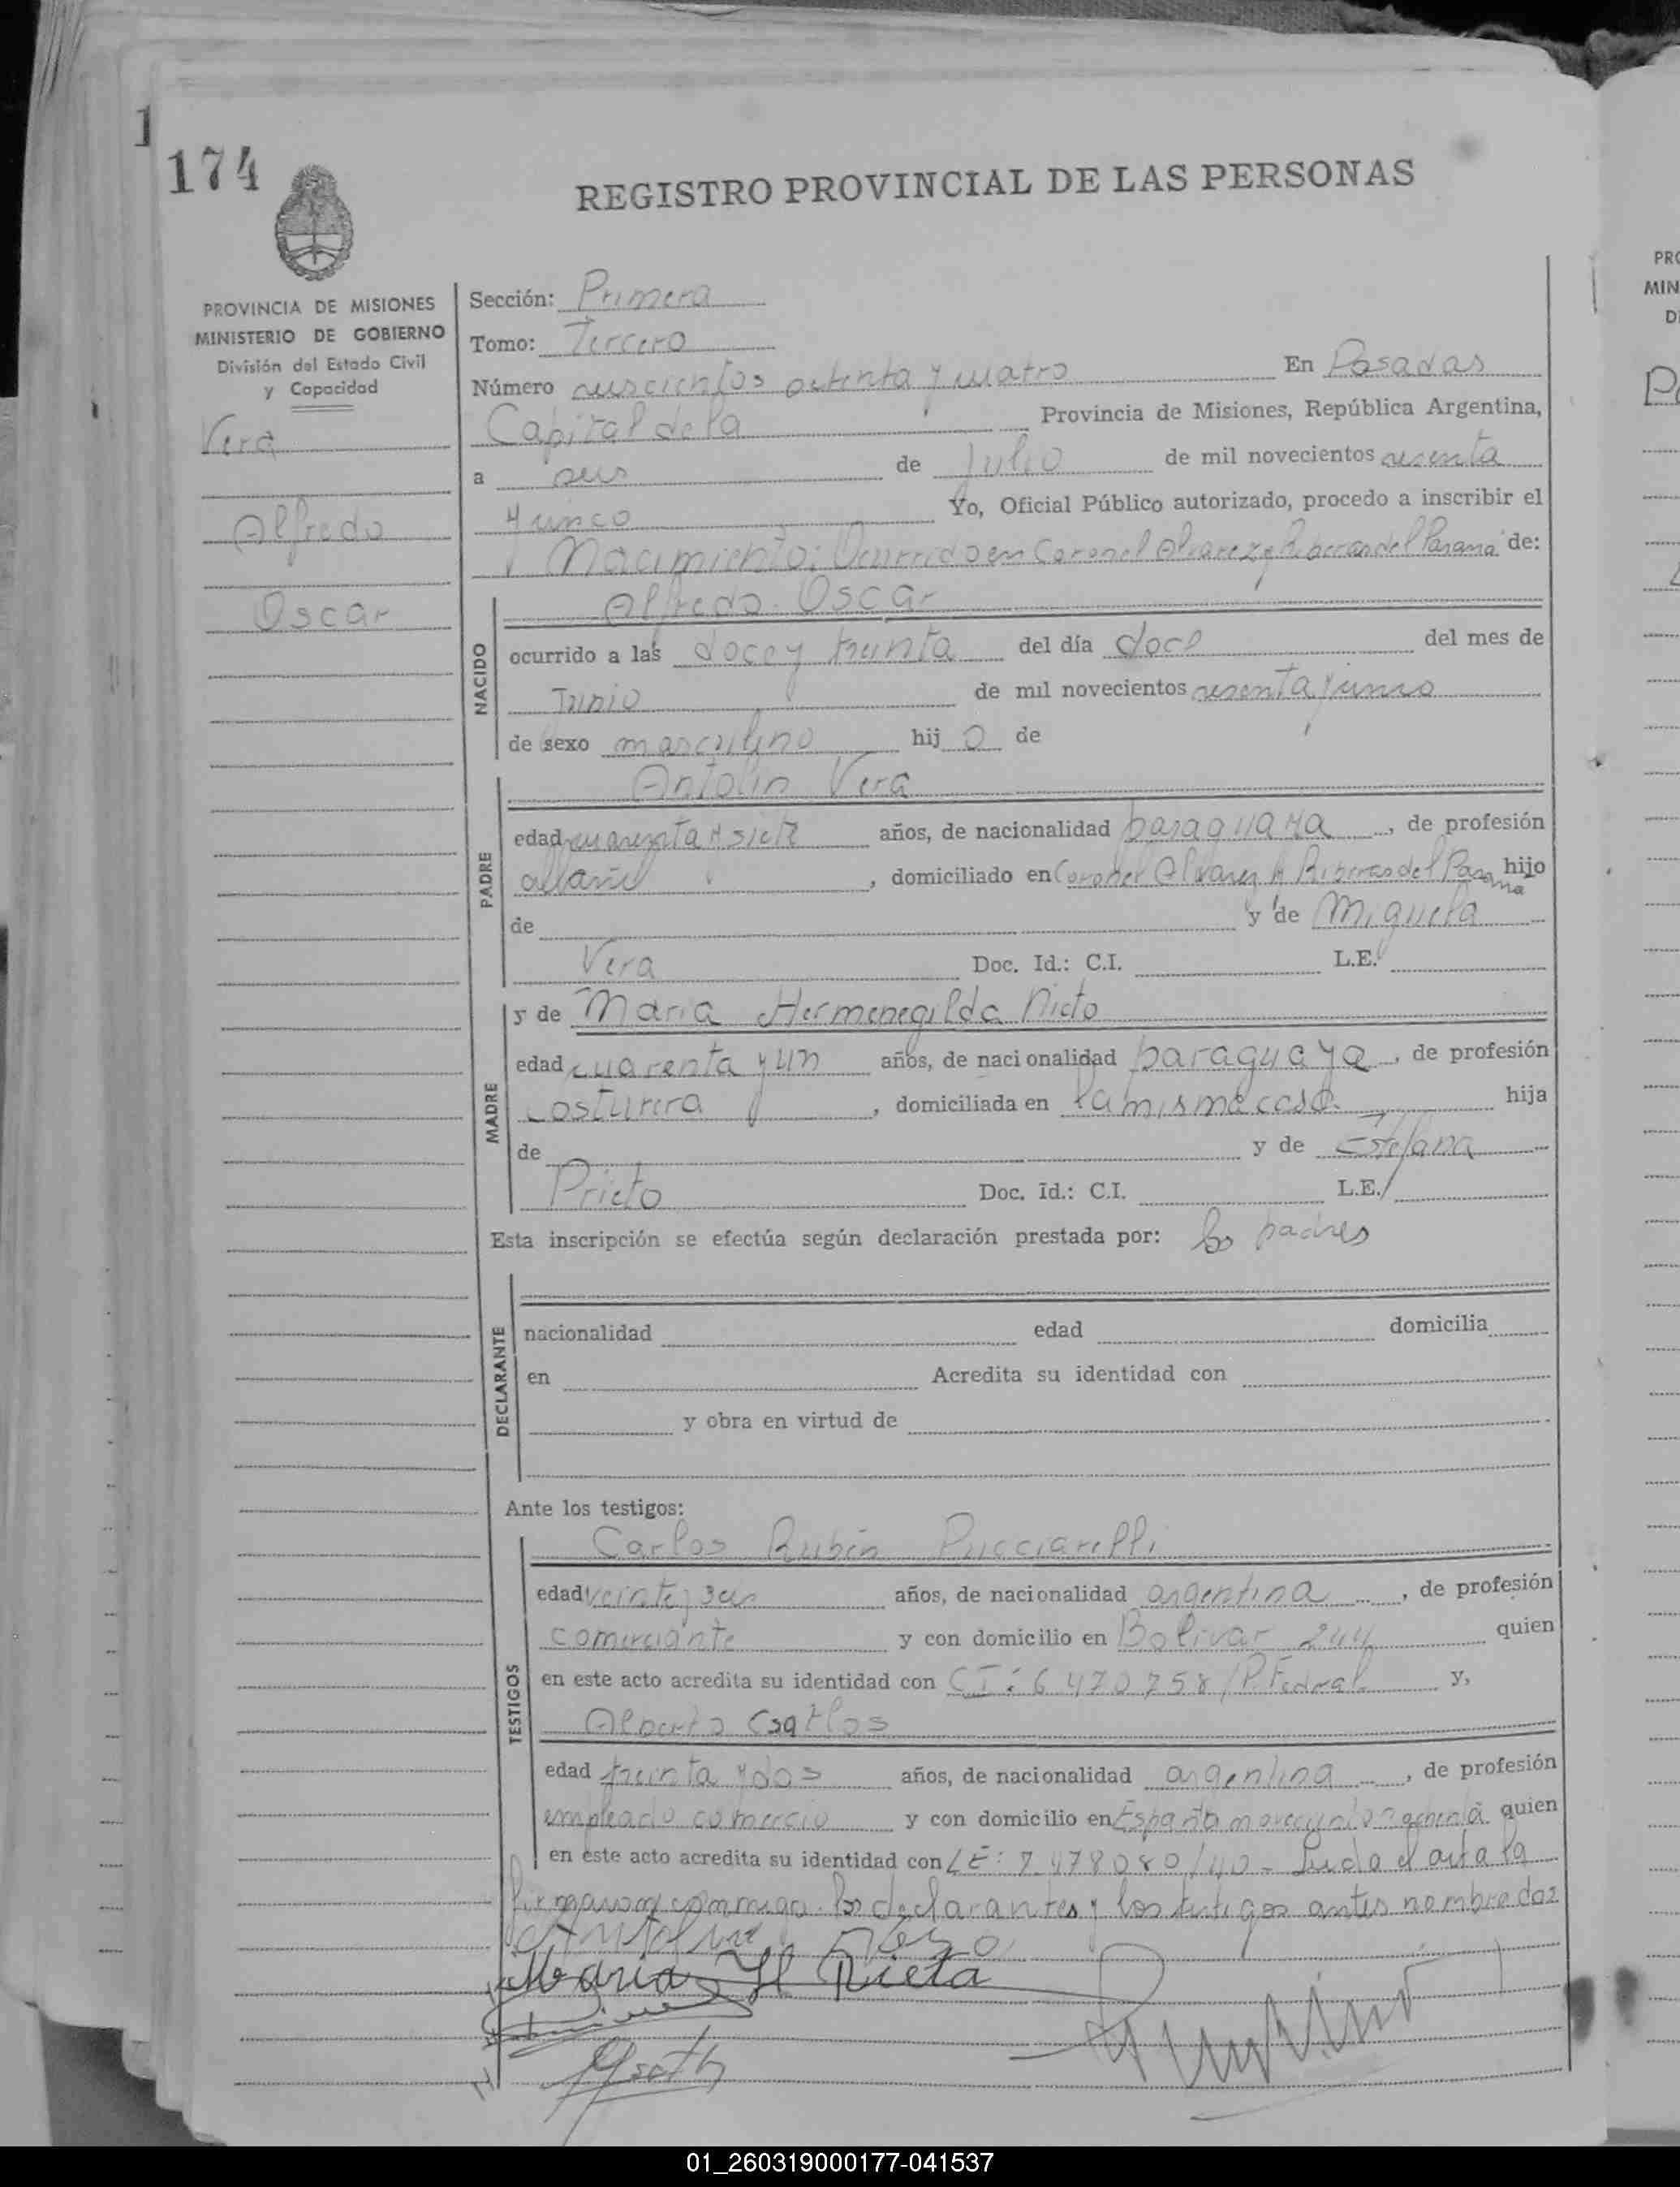 1
174
REGISTRO PROVINCIAL DE LAS PERSONAS
PROVINCIA DE MISIONES
MINISTERIO DE GOBIERNO
División del Estado Civil
y Capacidad
Vera
Alfredo
Oscar
Sección: Primera
Tomo: Tercero
Número ochenta y cuatro En Posadas
Capital de la Provincia de Misiones, República Argentina,
a seis de Julio de mil novecientos sesenta
y cinco Yo, Oficial Público autorizado, procedo a inscribir el
Nacimiento: Ocurrido en Coronel Alvarez y Riberas del Parana de:
NACIDO
Alfredo Oscar
ocurrido a las doce y treinta del día doce del mes de
Junio de mil novecientos sesenta y cinco
de sexo masculino hij o de
PADRE
Antolin Vera
edad cuarenta y siete años, de nacionalidad paraguaya, de profesión
albañil, domiciliado en Coronel Alvarez y Riberas del Parana hijo
de y de Miguela
Vera Doc. Id.: C.I. L.E.
MADRE
y de Maria Hermenegilda Nieto
edad cuarenta y un años, de nacionalidad paraguaya, de profesión
costurera, domiciliada en la misma casa hija
de y de Estefana
Prieto Doc. Id.: C.I. L.E.
Esta inscripción se efectúa según declaración prestada por: los padres
DECLARANTE
nacionalidad edad domicilia
en Acredita su identidad con
y obra en virtud de
Ante los testigos:
TESTIGOS
Carlos Rubén Pucciarelli
edad veinte y seis años, de nacionalidad argentina, de profesión
comerciante y con domicilio en Bolivar 244 quien
en este acto acredita su identidad con CI: 6470758/P. Federal y,
Alberto
edad treinta y dos años, de nacionalidad argentina, de profesión
empleado comercio y con domicilio en España quien
en este acto acredita su identidad con LE: 7.478080/40 - Leida el acta la
firmaron conmigo los declarantes y los testigos antes nombrados
Maria H Nieta
01_260319000177-041537